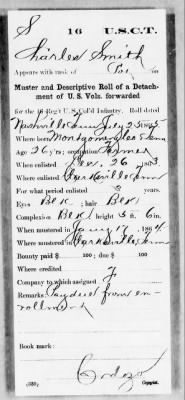 S 16 U.S.C.T.
Charles Smith
Appears with rank of Pvt. on
Muster and Descriptive Roll of a Detach-
ment of U. S. Vols. forwarded
for the 16 Reg't U.S. Col'd Infantry. Roll dated
Nashville Tenn July 25, 1865
Where born Montgomery Co Tenn
Age 26 y'rs; occupation Farmer
When enlisted Dec. 26, 1863
Where enlisted Clarksville Tenn
For what period enlisted 3 years.
Eyes Blk; hair Blk
Complexion Blk; height 5 ft. 6 in.
When mustered in Jany 17, 1864
Where mustered in Clarksville, Tenn
Bounty paid $ 100; due $ 100
Where credited
Company to which assigned F
Remarks: Paydue from en-
rollment
Book mark:
(339) Copyist.